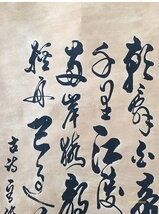 朝辭白帝
千里江陵
兩岸猿聲
輕舟已過
古詩